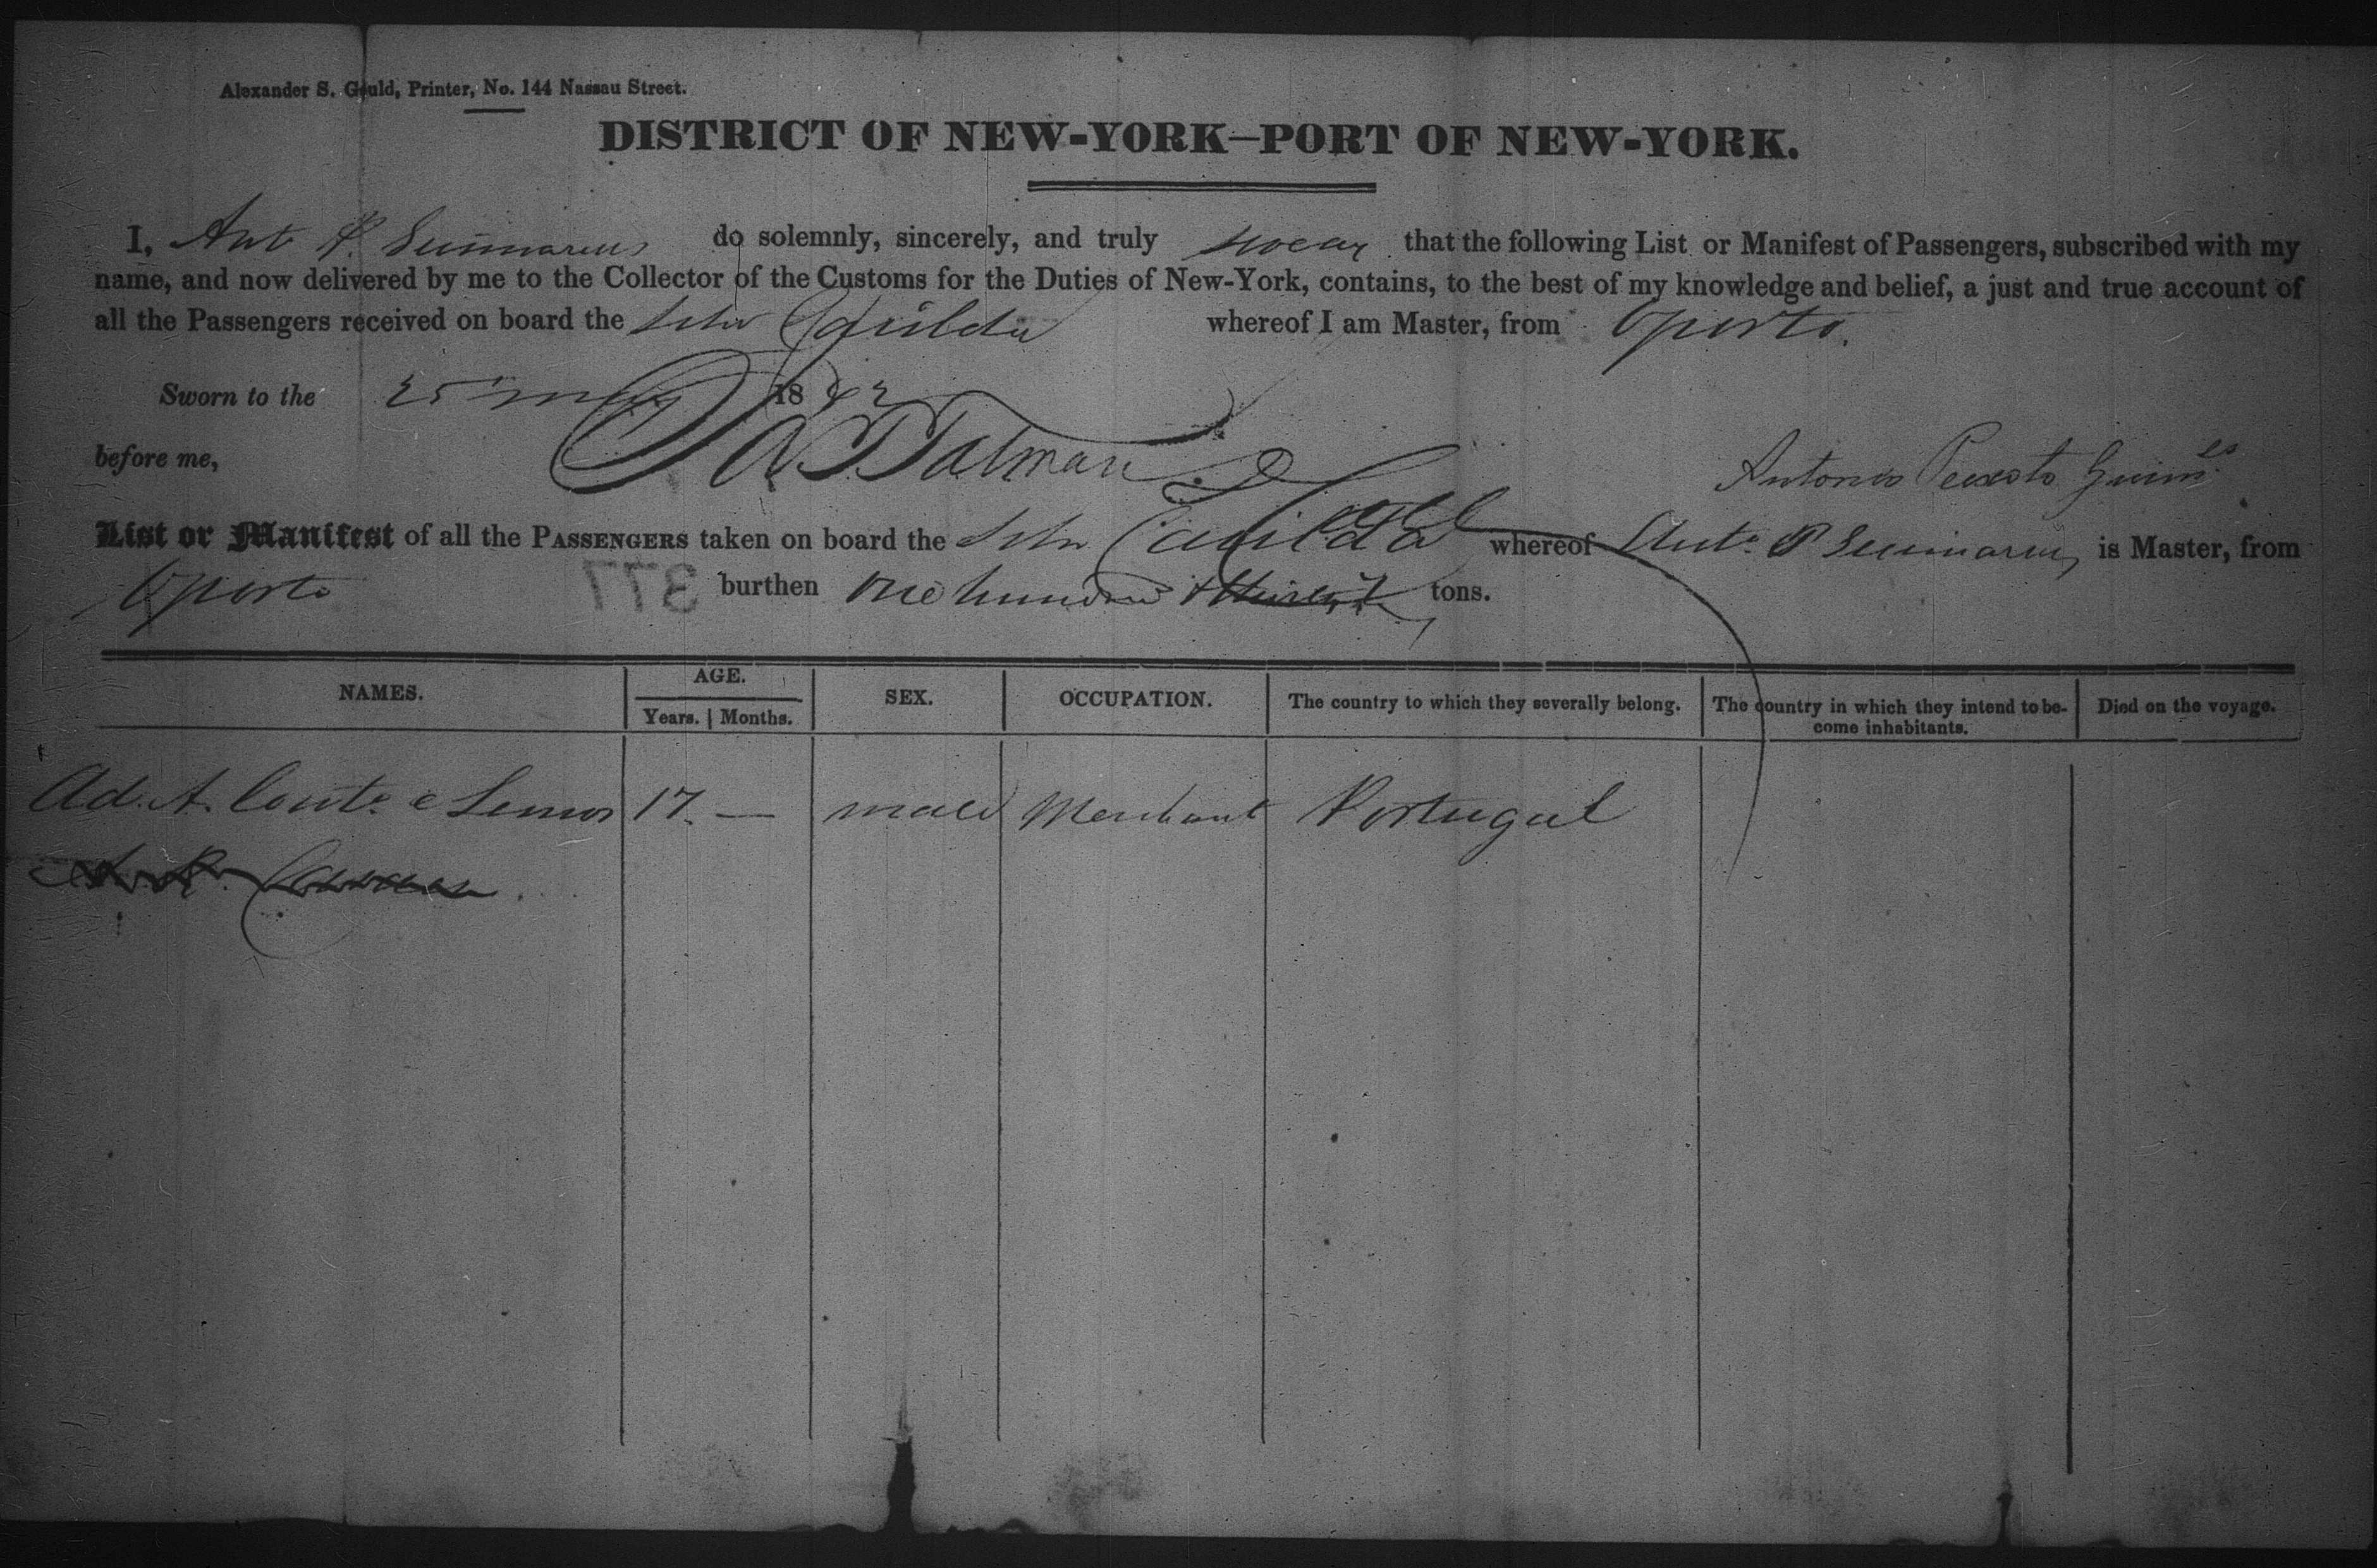 Alexander S. Gould, Printer, No. 144 Nassau Street.
DISTRICT OF NEW-YORK—PORT OF NEW-YORK.
I, Ant P. do solemnly, sincerely, and truly swear that the following List or Manifest of Passengers, subscribed with my
name, and now delivered by me to the Collector of the Customs for the Duties of New-York, contains, to the best of my knowledge and belief, a just and true account of
all the Passengers received on board the Schr Casilda whereof I am Master, from Oporto.
Sworn to the 25 May 1842
before me, Talman
Antonio Peixoto Guim.es
List or Manifest of all the PASSENGERS taken on board the Schr Casilda whereof Anto P is Master, from
Oporto 377 burthen One hundred & thirty tons.
NAMES. AGE. SEX. OCCUPATION. The country to which they severally belong. The country in which they intend to be- Died on the voyage.
Years. Months. come inhabitants.
Ad. A. Couto e Lemos 17 — male Merchant Portugal